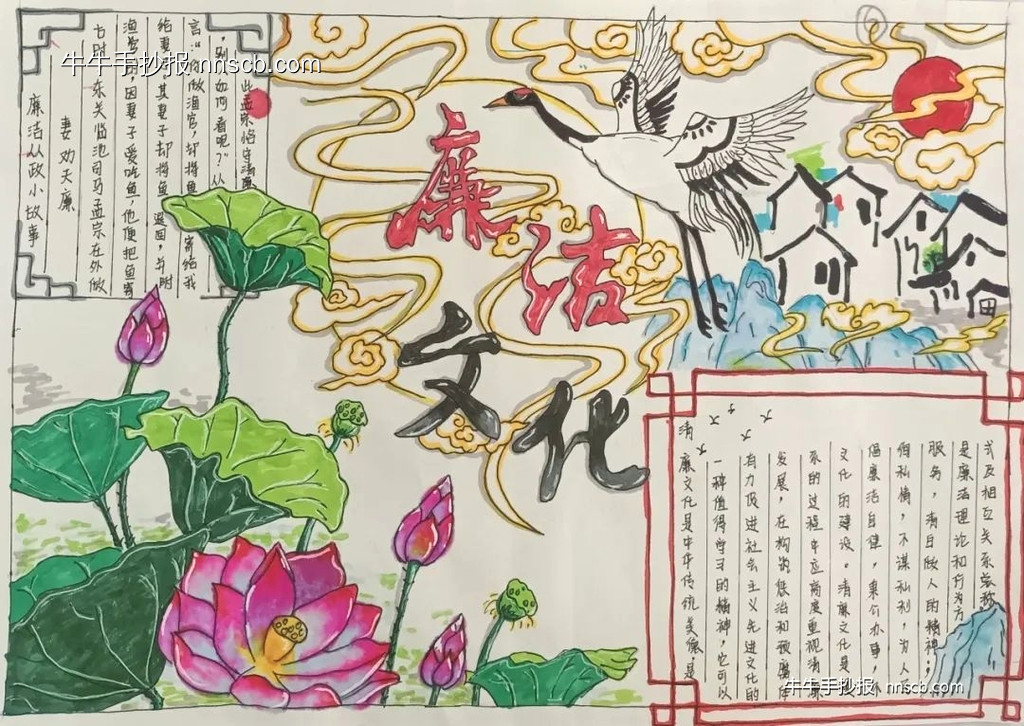 牛牛手抄报 nnscb.com
廉洁从政小故事
妻劝夫廉
东关监池司马孟宗在外做
渔官时，因妻子爱吃鱼，他便把鱼寄
给妻子，其妻子却将鱼退回，并附
言：“你做渔官，却将鱼寄给我
，别人如何看呢？”从
此孟宗恪守清廉
廉洁
文化
6
清廉文化是中华传统美德是
一种值得学习的精神，它可以
有力促进社会主义先进文化的
发展，在构筑惩治和预腐体
系的过程中应高度重视清廉
文化的建设。清廉文化是
倡廉洁自律，秉公办事，不
徇私情，不谋私利，为人
服务，清白做人的精神；
是廉洁理论和行为方
式及相互关系
牛牛手抄报 nnscb.com